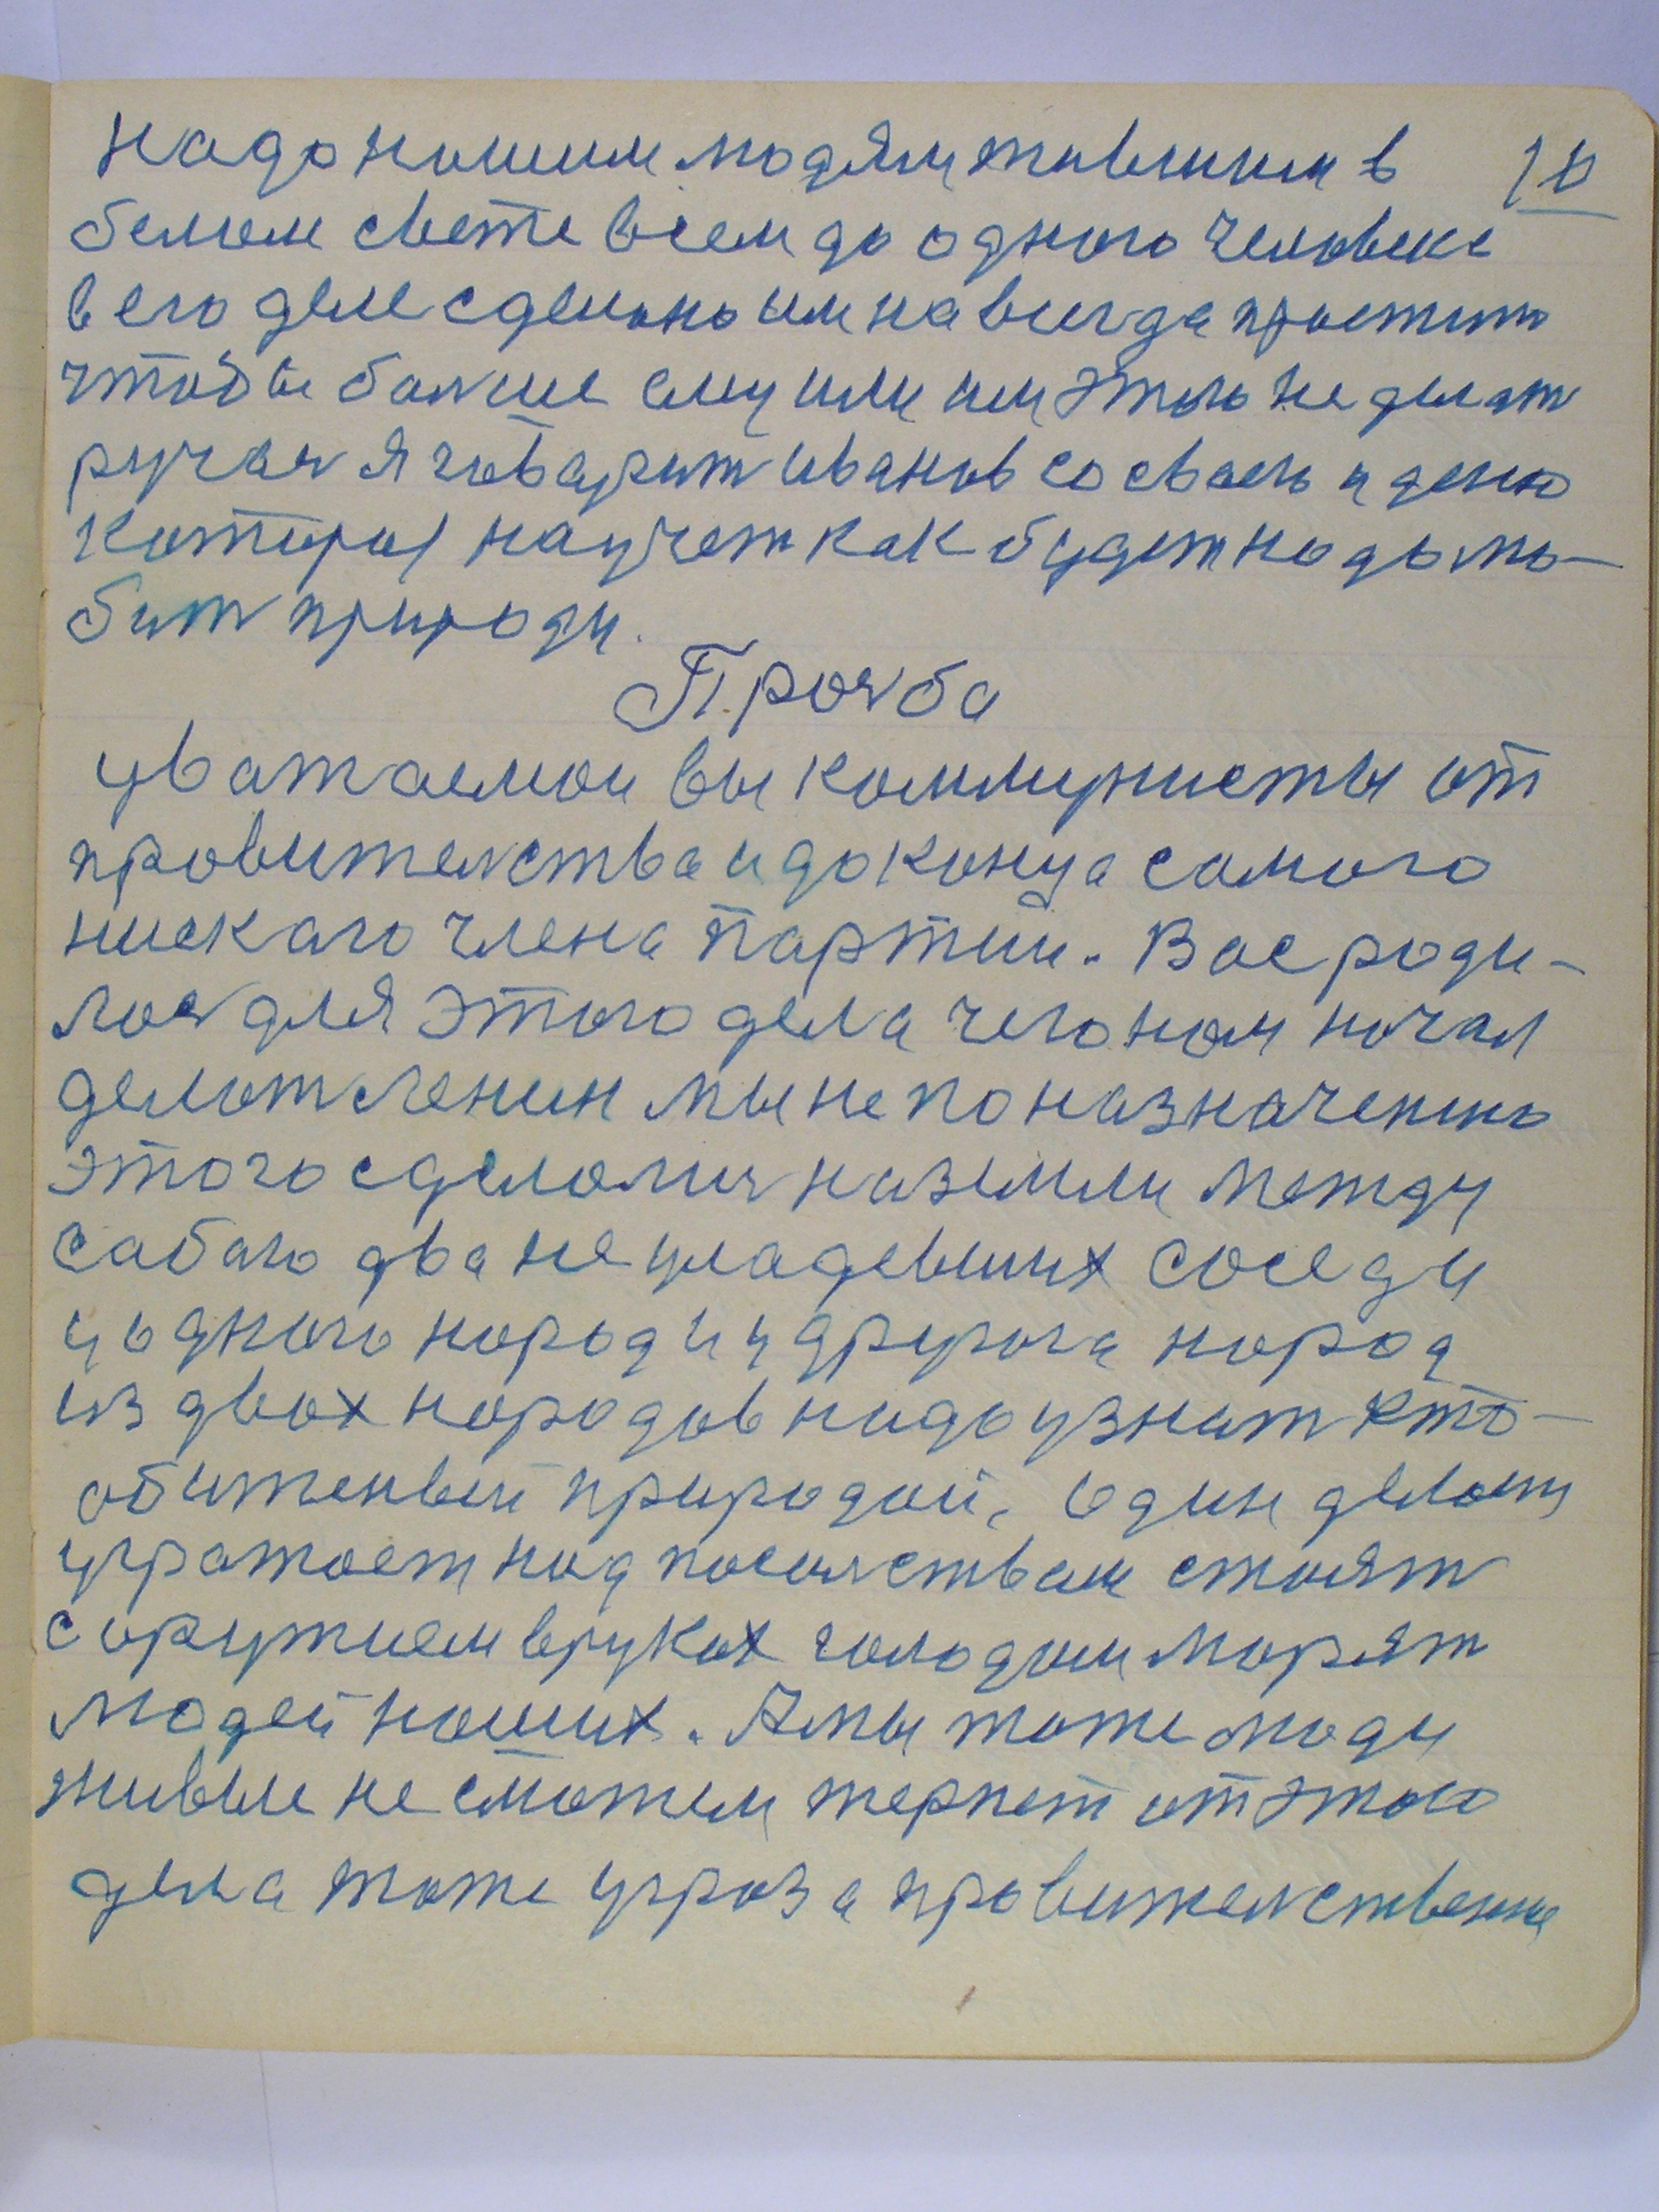 надо нашим людям жившим в 10
белом свете всем до одного человека
в его деле сделано им навсегда простит
чтобы болше ему или им этого не делат
ручаюсь я говарит иванов со сваею идею
которая научет как будет надо лю-
бит природу.
Прозьба
уважаемои вы коммунисты от
правителства и до конца самого
нискаго члена партии. Вас роди-
лось для этого дела чего нам начал
делат Ленин мы не по назначению
этого сделолись на земли между
сабаю два не уладевших соседи
у одного народ и у другога народ
из двох народов надо узнат кто-
обиженвый природой, один делом
угражает над посолством стоят
с оружием в руках голодом морят
людей наших. А мы тоже люди
живые не сможем терпет от этого
дела тоже угроза правителственне